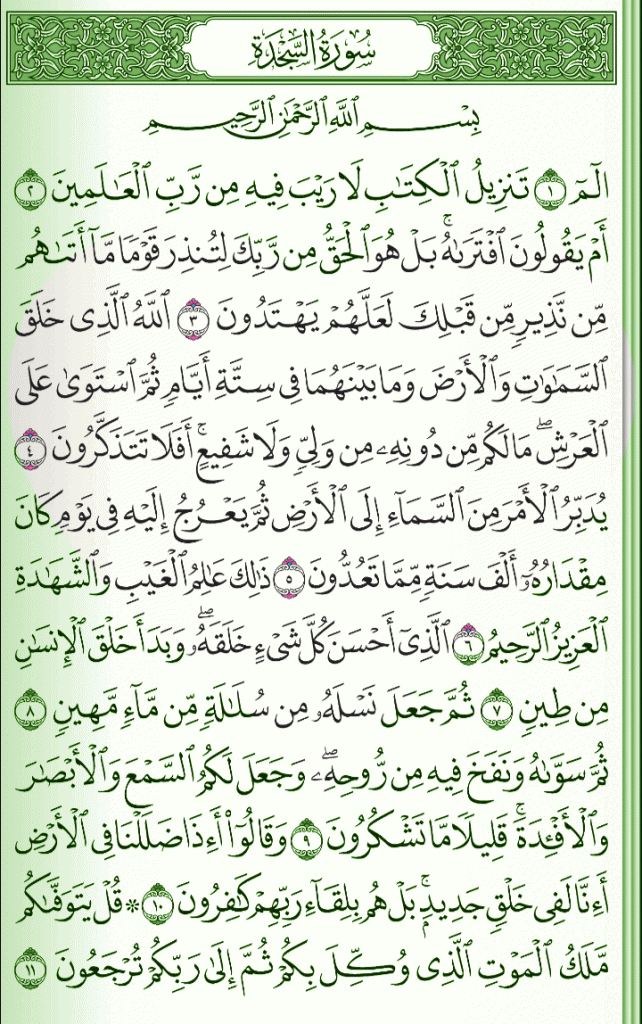 سُورَةُ السَّجْدَةِ
بِسْمِ ٱللَّهِ ٱلرَّحْمَٰنِ ٱلرَّحِيمِ
الٓمٓ ١ تَنزِيلُ ٱلْكِتَٰبِ لَا رَيْبَ فِيهِ مِن رَّبِّ ٱلْعَٰلَمِينَ ٢
أَمْ يَقُولُونَ ٱفْتَرَىٰهُۚ بَلْ هُوَ ٱلْحَقُّ مِن رَّبِّكَ لِتُنذِرَ قَوْمًا مَّآ أَتَىٰهُم
مِّن نَّذِيرٍ مِّن قَبْلِكَ لَعَلَّهُمْ يَهْتَدُونَ ٣ ٱللَّهُ ٱلَّذِى خَلَقَ
ٱلسَّمَٰوَٰتِ وَٱلْأَرْضَ وَمَا بَيْنَهُمَا فِى سِتَّةِ أَيَّامٍ ثُمَّ ٱسْتَوَىٰ عَلَى
ٱلْعَرْشِۖ مَا لَكُم مِّن دُونِهِۦ مِن وَلِىٍّ وَلَا شَفِيعٍۚ أَفَلَا تَتَذَكَّرُونَ ٤
يُدَبِّرُ ٱلْأَمْرَ مِنَ ٱلسَّمَآءِ إِلَى ٱلْأَرْضِ ثُمَّ يَعْرُجُ إِلَيْهِ فِى يَوْمٍ كَانَ
مِقْدَارُهُۥٓ أَلْفَ سَنَةٍ مِّمَّا تَعُدُّونَ ٥ ذَٰلِكَ عَٰلِمُ ٱلْغَيْبِ وَٱلشَّهَٰدَةِ
ٱلْعَزِيزُ ٱلرَّحِيمُ ٦ ٱلَّذِىٓ أَحْسَنَ كُلَّ شَىْءٍ خَلَقَهُۥۖ وَبَدَأَ خَلْقَ ٱلْإِنسَٰنِ
مِن طِينٍ ٧ ثُمَّ جَعَلَ نَسْلَهُۥ مِن سُلَٰلَةٍ مِّن مَّآءٍ مَّهِينٍ ٨
ثُمَّ سَوَّىٰهُ وَنَفَخَ فِيهِ مِن رُّوحِهِۦۖ وَجَعَلَ لَكُمُ ٱلسَّمْعَ وَٱلْأَبْصَٰرَ
وَٱلْأَفْـِٔدَةَۚ قَلِيلًا مَّا تَشْكُرُونَ ٩ وَقَالُوٓا۟ أَءِذَا ضَلَلْنَا فِى ٱلْأَرْضِ
أَءِنَّا لَفِى خَلْقٍ جَدِيدٍۭۚ بَلْ هُم بِلِقَآءِ رَبِّهِمْ كَٰفِرُونَ ١٠ ۞ قُلْ يَتَوَفَّىٰكُم
مَّلَكُ ٱلْمَوْتِ ٱلَّذِى وُكِّلَ بِكُمْ ثُمَّ إِلَىٰ رَبِّكُمْ تُرْجَعُونَ ١١